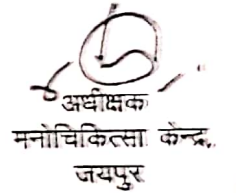 अधीक्षक
मनोचिकित्सा केन्द्र,
जयपुर